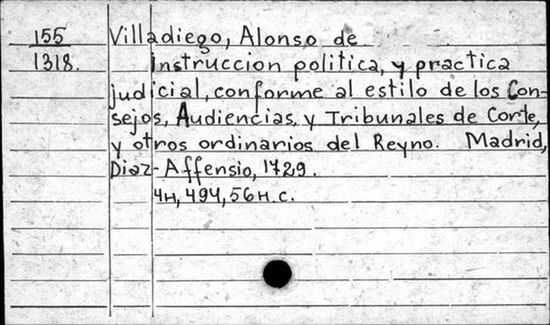 155 Villadiego, Alonso de
1318. Instruccion politica, y practica
judicial, conforme al estilo de los Con-
sejos, Audiencias, y Tribunales de Corte,
y otros ordinarios del Reyno. Madrid,
Diaz-Affensio, 1729.
4H, 494, 56H.c.